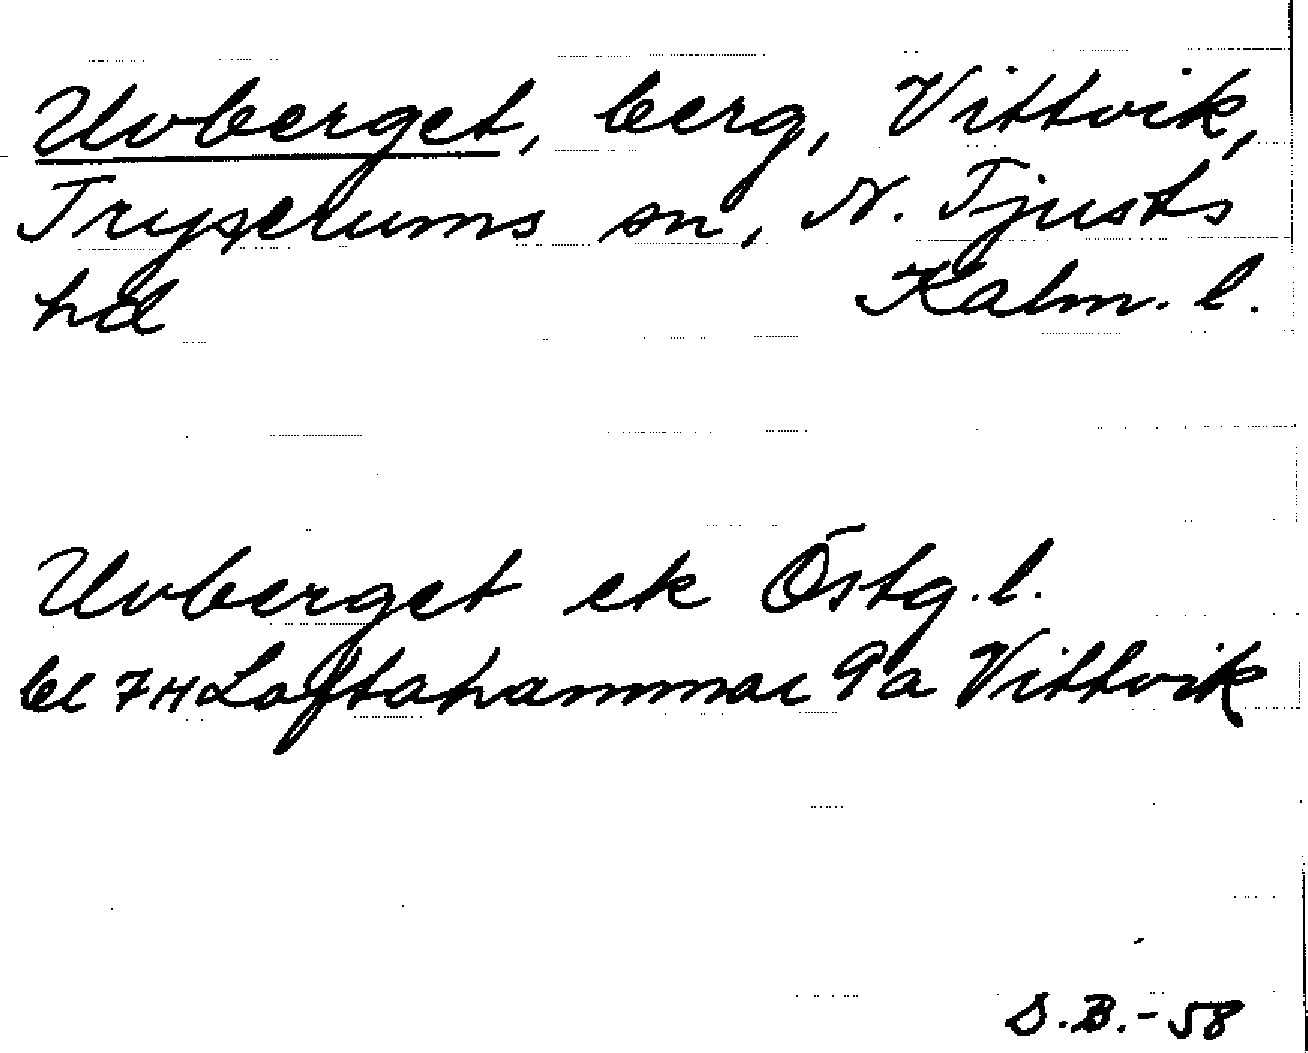 Uvberget, berg, Vittvik,
Tryserums sn, N. Tjusts
hd Kalm. l.
Uvberget ek Östg. l.
bl 7H Loftahammar 9a Vittvik
S.B.-58